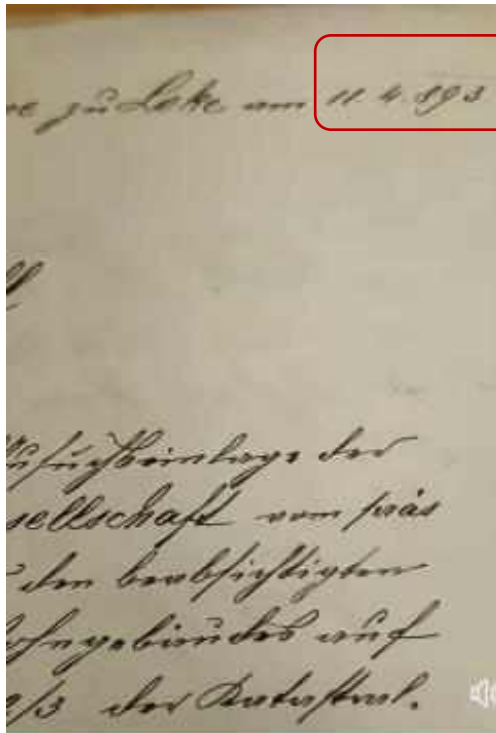 zu Loke am 11. 4. 893
der
sellschaft vom präs
den beabsichtigten
hngebäudes auf
2/3 der Katastral.